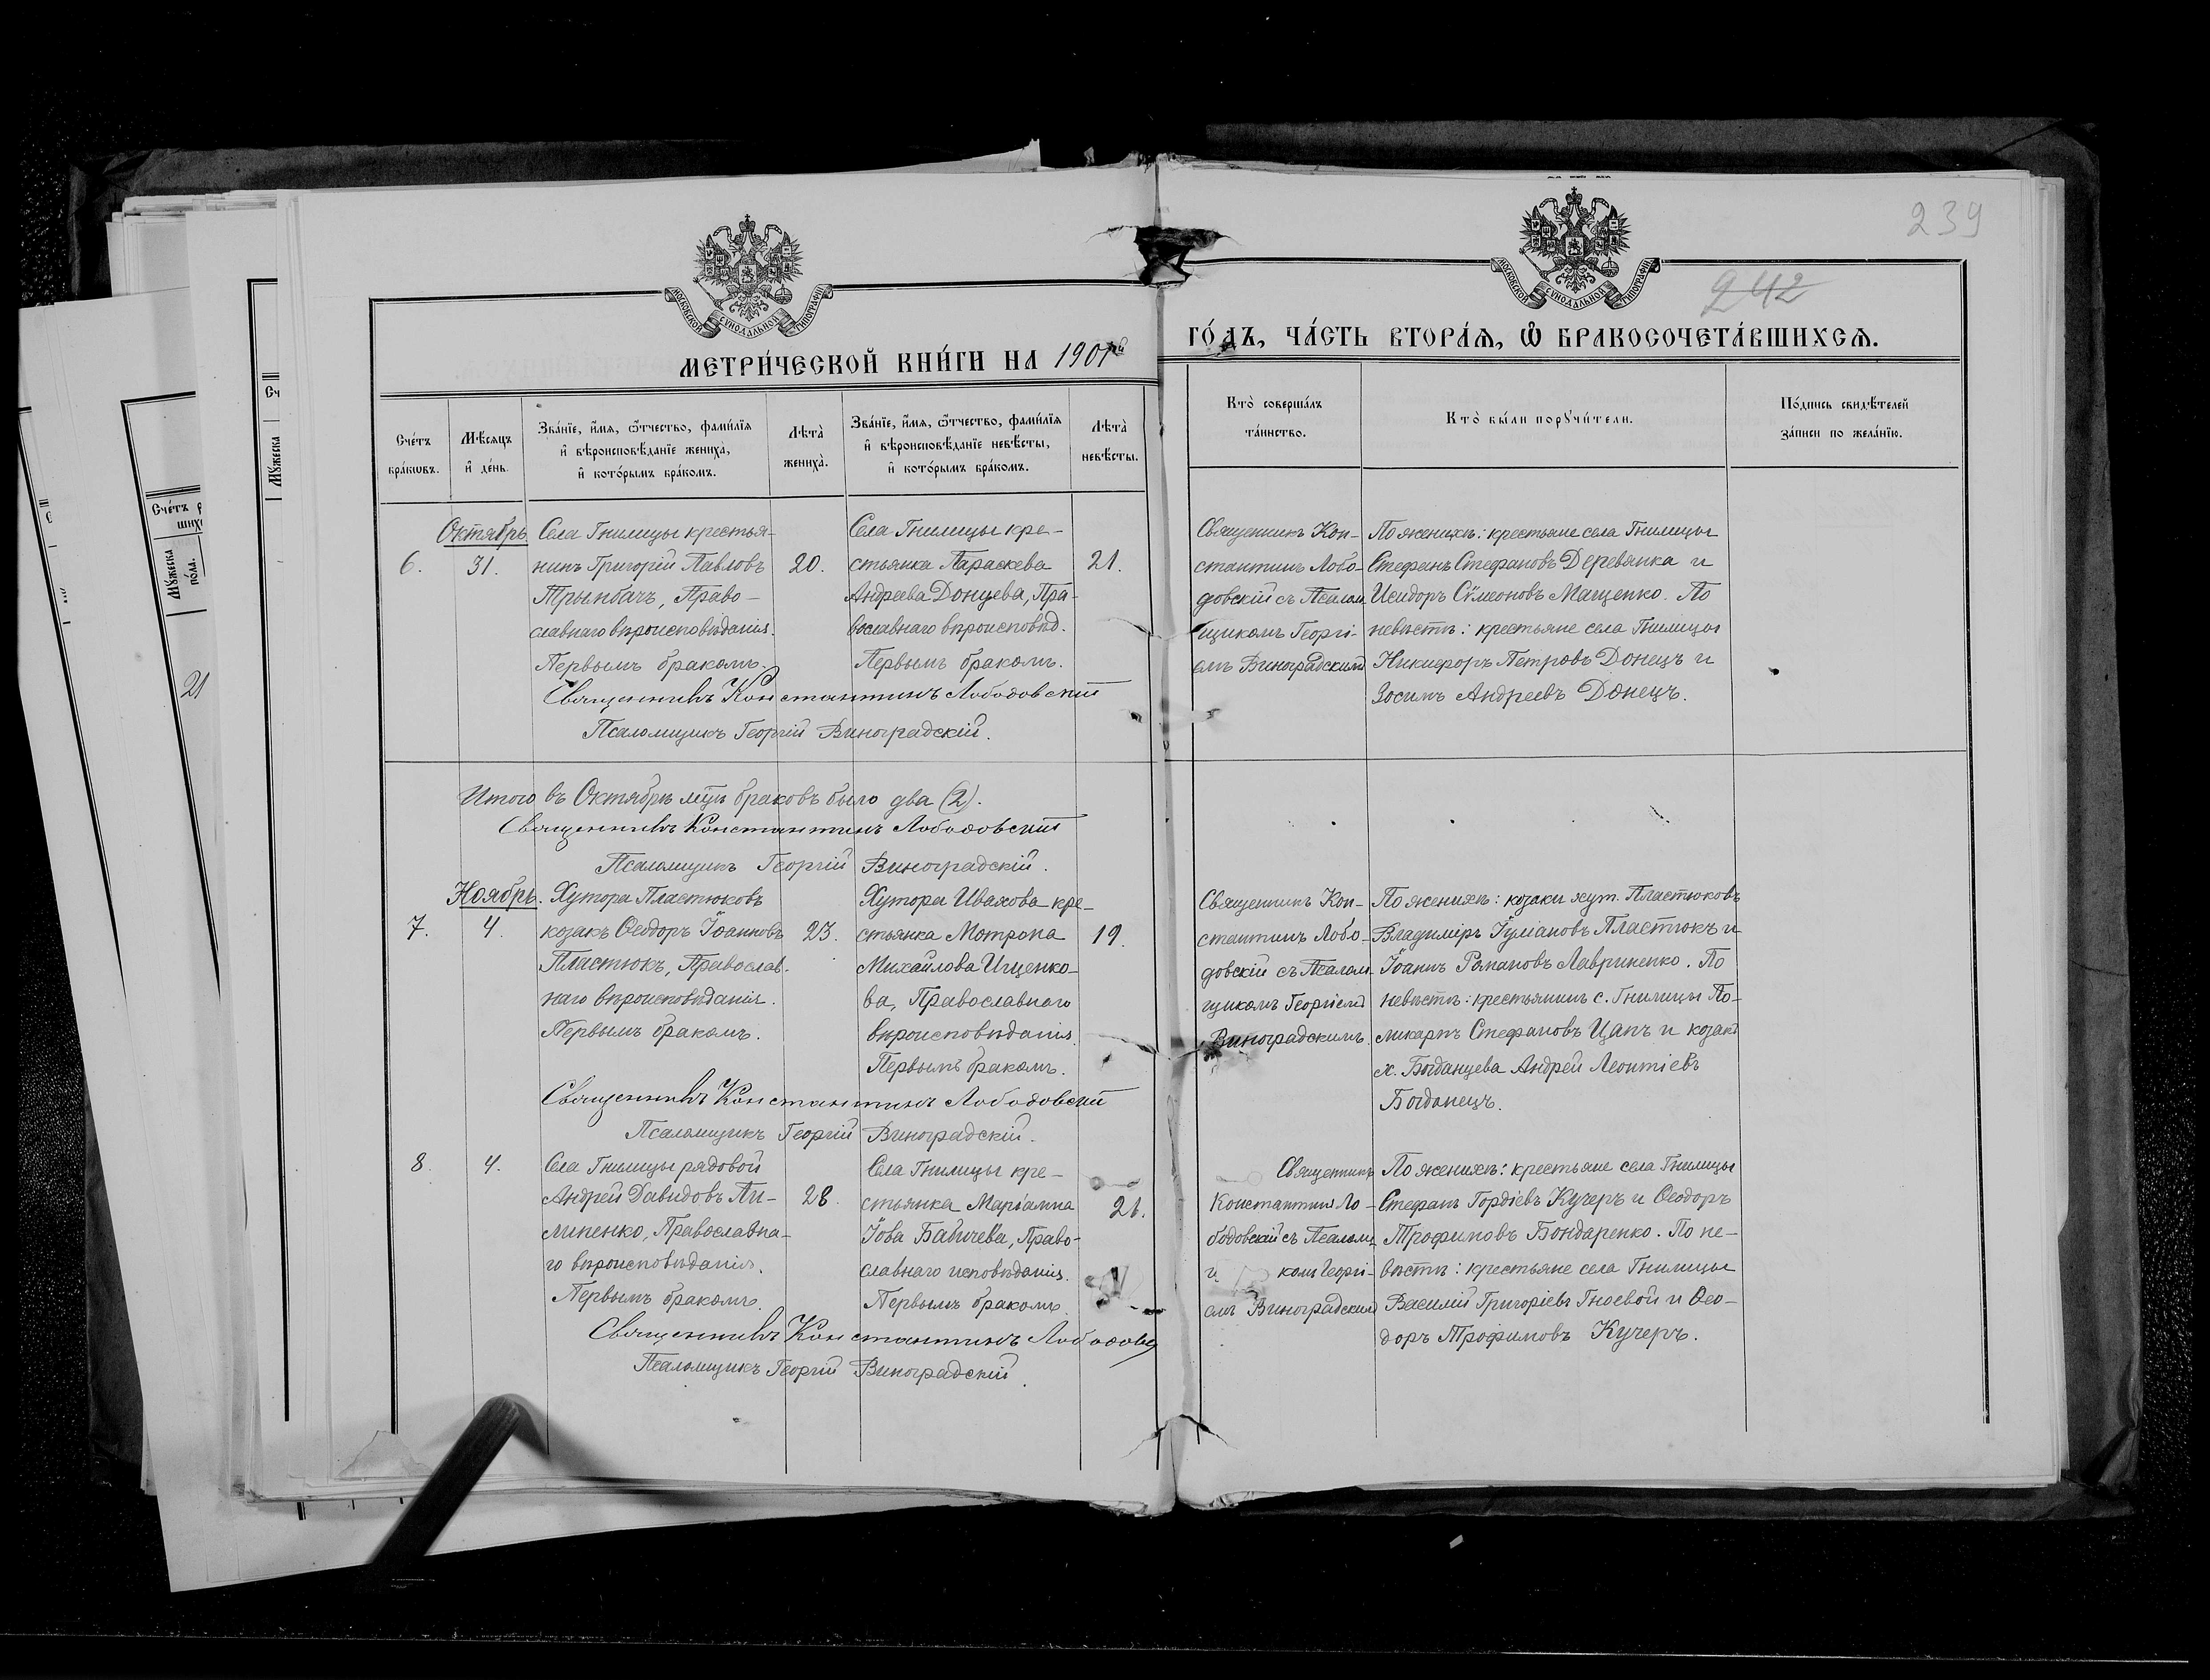 239
242
МОСКОВСКОЙ СѴНОДАЛЬНОЙ ТИПОГРАФІИ
МОСКОВСКОЙ СѴНОДАЛЬНОЙ ТИПОГРАФІИ
МЕТРИ́ЧЕСКОЙ КНИ́ГИ НА 1901ый
ГО́ДЪ, ЧА́СТЬ ВТОРА́Я, Ѡ҆ БРАКОСОЧЕТА́ВШИХСЯ.
Сче́тъ бра́ковъ.
Мѣ́сяцъ и҆ де́нь.
Зва́нїе, и҆́мя, ѻ҆́тчество, фами́лїя
и҆ вѣроисповѣ́данїе жениха̀,
и҆ кото́рымъ бра́комъ.
Лѣта̀ жениха̀.
Зва́нїе, и҆́мя, ѻ҆́тчество, фами́лїя
и҆ вѣроисповѣ́данїе невѣ́сты,
и҆ кото́рымъ бра́комъ.
Лѣта̀ невѣ́сты.
Кто̀ соверша́лъ
та́инство.
Кто̀ бы́ли порꙋчи́тели.
По́дпись свидѣ́телей
за́писи по жела́нїю.
Октябрь.
6.
31.
Села Гнилицы крестья-
нинъ Григорій Павловъ
Трынбачъ, Право-
славнаго вѣроисповѣданія.
Первымъ бракомъ.
20.
Села Гнилицы кре-
стьянка Параскева
Андреева Донцева, Пра-
вославнаго вѣроисповѣд.
Первымъ бракомъ.
21.
Священникъ Кон-
стантинъ Лобо-
довскій съ Псалом
щикомъ Георгі-
емъ Виноградскимъ
По женихѣ: крестьяне села Гнилицы
Стефанъ Стефановъ Деревянка и
Исидоръ Сѵмеоновъ Мащенко. По
невѣстѣ: крестьяне села Гнилицы
Никифоръ Петровъ Донецъ и
Зосимъ Андреевъ Донецъ.
Священникъ Константинъ Лободовскій
Псаломщикъ Георгій Виноградскій.
Итого въ Октябрѣ мцѣ браковъ было два (2).
Священникъ Константинъ Лободовскій
Псаломщикъ Георгій Виноградскій.
Ноябрь.
7.
4.
Хутора Пластюковъ
козакъ Ѳеодоръ Іоанновъ
Пластюкъ, Православ.
наго вѣроисповѣданія.
Первымъ бракомъ.
23.
Хутора Ивахова кре-
стьянка Мотрона
Михайлова Ищенко-
ва, Православнаго
вѣроисповѣданія.
Первымъ бракомъ.
19.
Священникъ Кон-
стантинъ Лобо-
довскій съ Псалом-
щикомъ Георгіемъ
Виноградскимъ.
По женихѣ: козаки хут. Пластюковъ
Владимиръ Іуліановъ Пластюкъ и
Іоаннъ Романовъ Лавриненко. По
невѣстѣ: крестьянинъ с. Гнилицы По-
ликарпъ Стефановъ Цапъ и козакъ
х. Богданцева Андрей Леонтіевъ
Богданецъ.
Священникъ Константинъ Лободовскій
Псаломщикъ Георгій Виноградскій.
8.
4.
Села Гнилицы рядовой
Андрей Давидовъ Пи-
липенко, Православна-
го вѣроисповѣданія.
Первымъ бракомъ.
28.
Села Гнилицы кре-
стьянка Маріамна
Іова Баличева, Право-
славнаго исповѣданія.
Первымъ бракомъ.
21.
Священникъ
Константинъ Ло-
бодовскій съ Псалом
щ комъ Георгі-
емъ Виноградскимъ
По женихѣ: крестьяне села Гнилицы
Стефанъ Гордіевъ Кучеръ и Ѳеодоръ
Трофимовъ Бондаренко. По не-
вѣстѣ: крестьяне села Гнилицы
Василій Григоріевъ Гноевой и Ѳео-
доръ Трофимовъ Кучеръ.
Священникъ Константинъ Лободовск
Псаломщикъ Георгій Виноградскій.
21